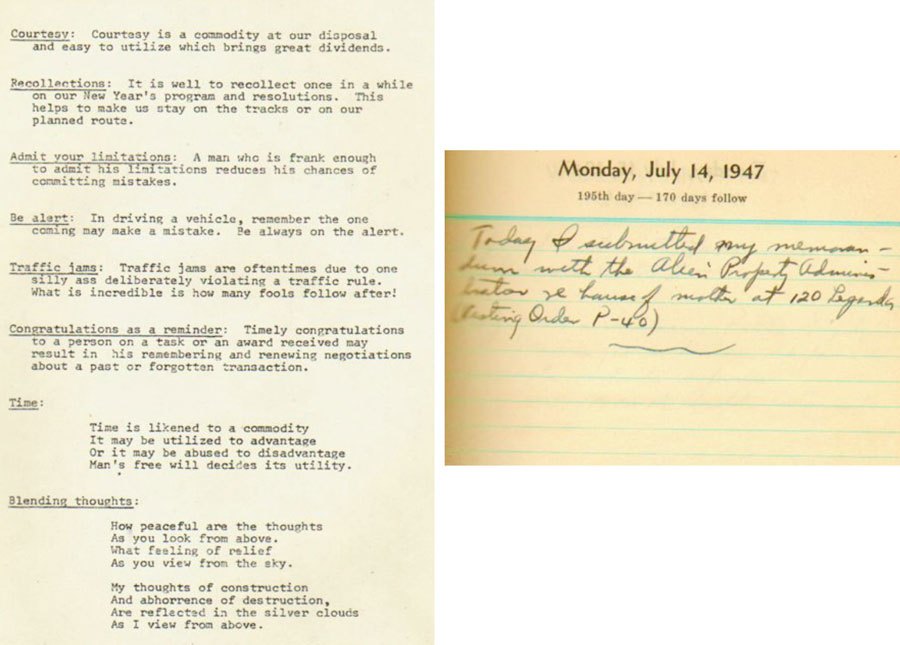 Courtesy: Courtesy is a commodity at our disposal
and easy to utilize which brings great dividends.
Recollections: It is well to recollect once in a while
on our New Year's program and resolutions. This
helps to make us stay on the tracks or on our
planned route.
Admit your limitations: A man who is frank enough
to admit his limitations reduces his chances of
committing mistakes.
Be alert: In driving a vehicle, remember the one
coming may make a mistake. Be always on the alert.
Traffic jams: Traffic jams are oftentimes due to one
silly ass deliberately violating a traffic rule.
What is incredible is how many fools follow after!
Congratulations as a reminder: Timely congratulations
to a person on a task or an award received may
result in his remembering and renewing negotiations
about a past or forgotten transaction.
Time:
Time is likened to a commodity
It may be utilized to advantage
Or it may be abused to disadvantage
Man's free will decides its utility.
Blending thoughts:
How peaceful are the thoughts
As you look from above.
What feeling of relief
As you view from the sky.
My thoughts of construction
And abhorrence of destruction,
Are reflected in the silver clouds
As I view from above.
Monday, July 14, 1947
195th day — 170 days follow
Today I submitted my memoran-
dum with the Alien Property Adminis-
trator re house of mother at 120 Legarda
(Vesting Order P-40)